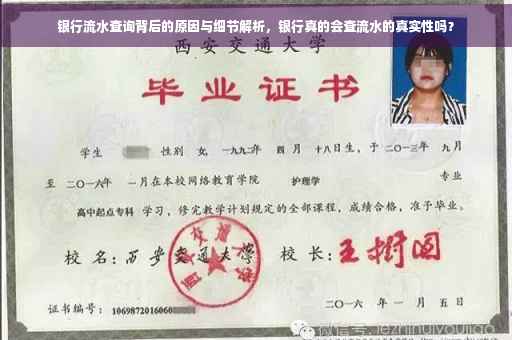 银行流水查询背后的原因与细节解析，银行真的会查流水的真实性吗？
西安交通大学
毕业证书
学生 性别 女, 一九九二年 四月 十八日生, 于 二〇一三年 九月
至 二〇一六年 一月在本校网络教育学院 护理学 专业
高中起点专科 学习, 修完教学计划规定的全部课程, 成绩合格, 准予毕业。
校名: 西安交通大学 校长: 王树国
证书编号: 1069872016060
二〇一六年 一月 五日
微信号: jezhihuiyoujiao